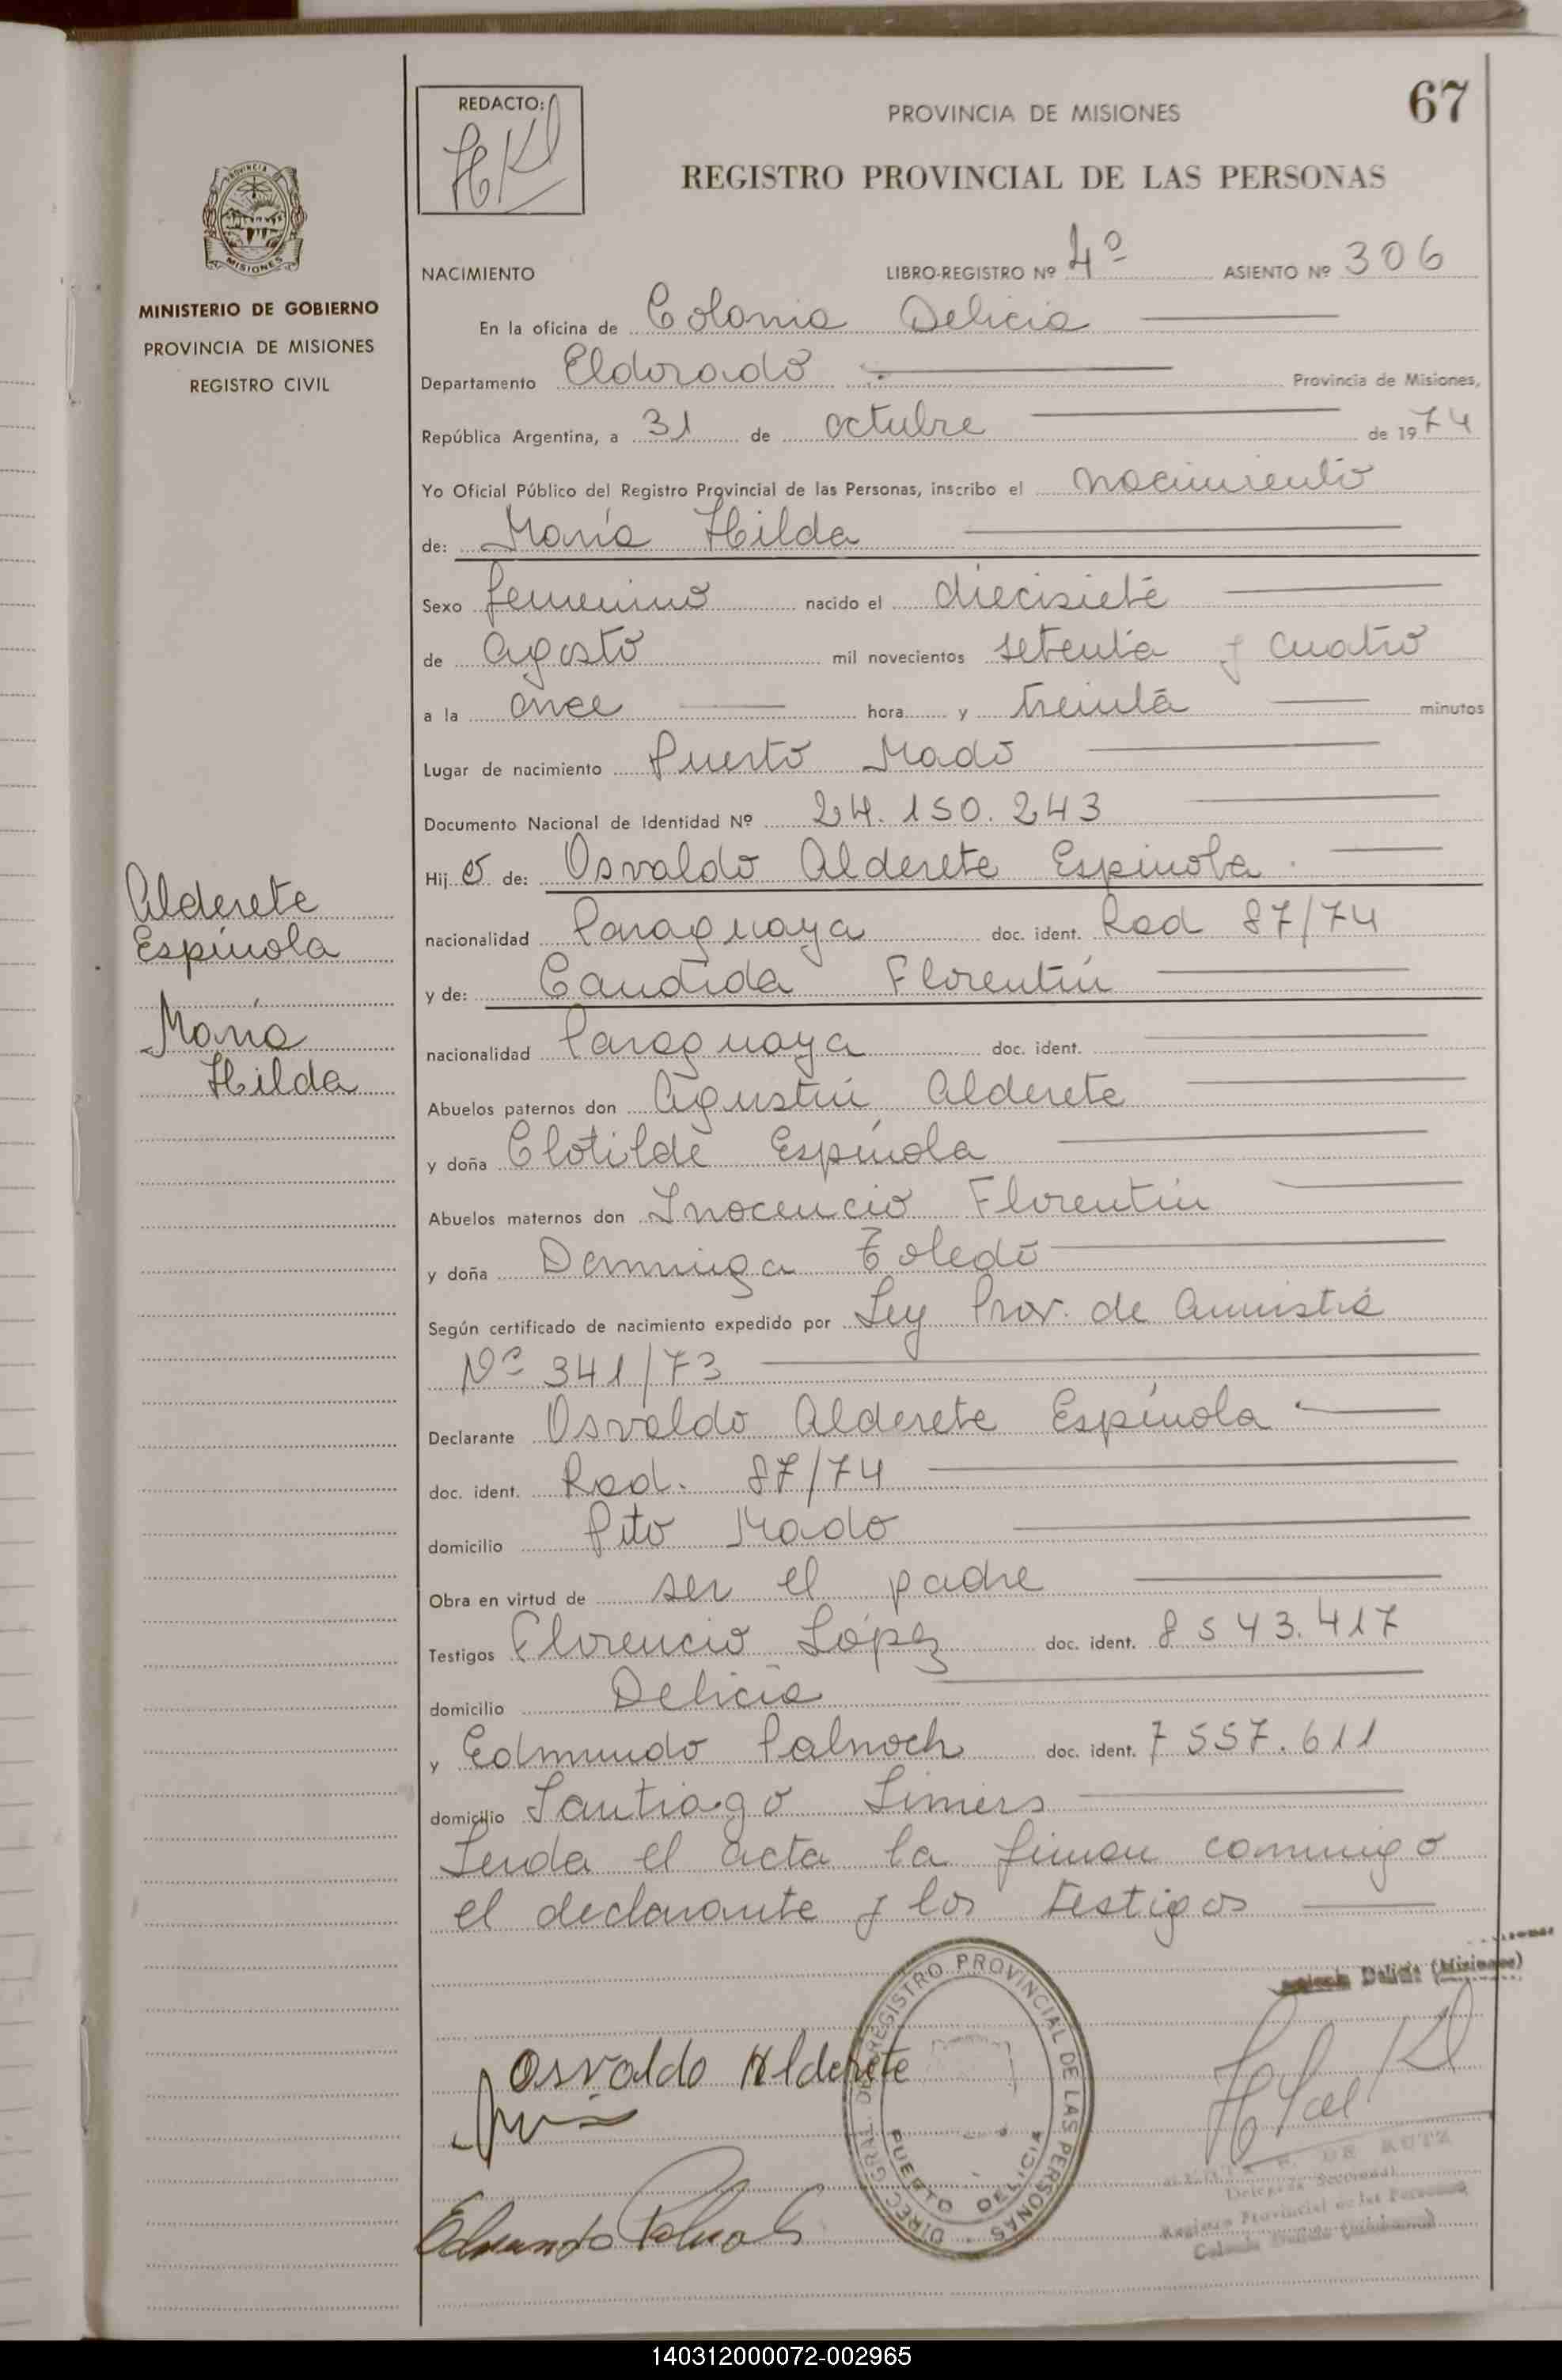 67
REDACTO:
PROVINCIA DE MISIONES
REGISTRO PROVINCIAL DE LAS PERSONAS
PROVINCIA DE
MISIONES
MINISTERIO DE GOBIERNO
PROVINCIA DE MISIONES
REGISTRO CIVIL
NACIMIENTO LIBRO-REGISTRO Nº 4º ASIENTO Nº 306
En la oficina de Colonia Delicia
Departamento Eldorado Provincia de Misiones,
República Argentina, a 31 de octubre de 1974
Yo Oficial Público del Registro Provincial de las Personas, inscribo el nacimiento
de: María Hilda
Sexo femenino nacido el diecisiete
de agosto mil novecientos setenta y cuatro
a la once hora y treinta minutos
Lugar de nacimiento Puerto Mado
Documento Nacional de Identidad Nº 24.150.243
Hij o de: Osvaldo Alderete Espínola
nacionalidad Paraguaya doc. ident. Rad 87/74
y de: Candida Florentín
nacionalidad Paraguaya doc. ident.
Abuelos paternos don Agustín Alderete
y doña Clotilde Espínola
Abuelos maternos don Inocencio Florentín
y doña Dominga Toledo
Según certificado de nacimiento expedido por Ley Prov. de Amnistía
Nº 341/73
Declarante Osvaldo Alderete Espínola
doc. ident. Rad. 87/74
domicilio Pto Mado
Obra en virtud de ser el padre
Testigos Florencio López doc. ident. 8 543.417
domicilio Delicia
y Edmundo Palnoch doc. ident. 7 557.611
domicilio Santiago Liniers
Leída el acta la firman conmigo
el declarante y los testigos
Alderete
Espínola
María
Hilda
Delicia (Misiones)
Osvaldo Alderete
DIREC. GRAL. DEL REGISTRO PROVINCIAL DE LAS PERSONAS
PUERTO DELICIA
DE KUTZ
Delegada Seccional
Registro Provincial de las Personas
Colonia Delicia (Misiones)
140312000072-002965